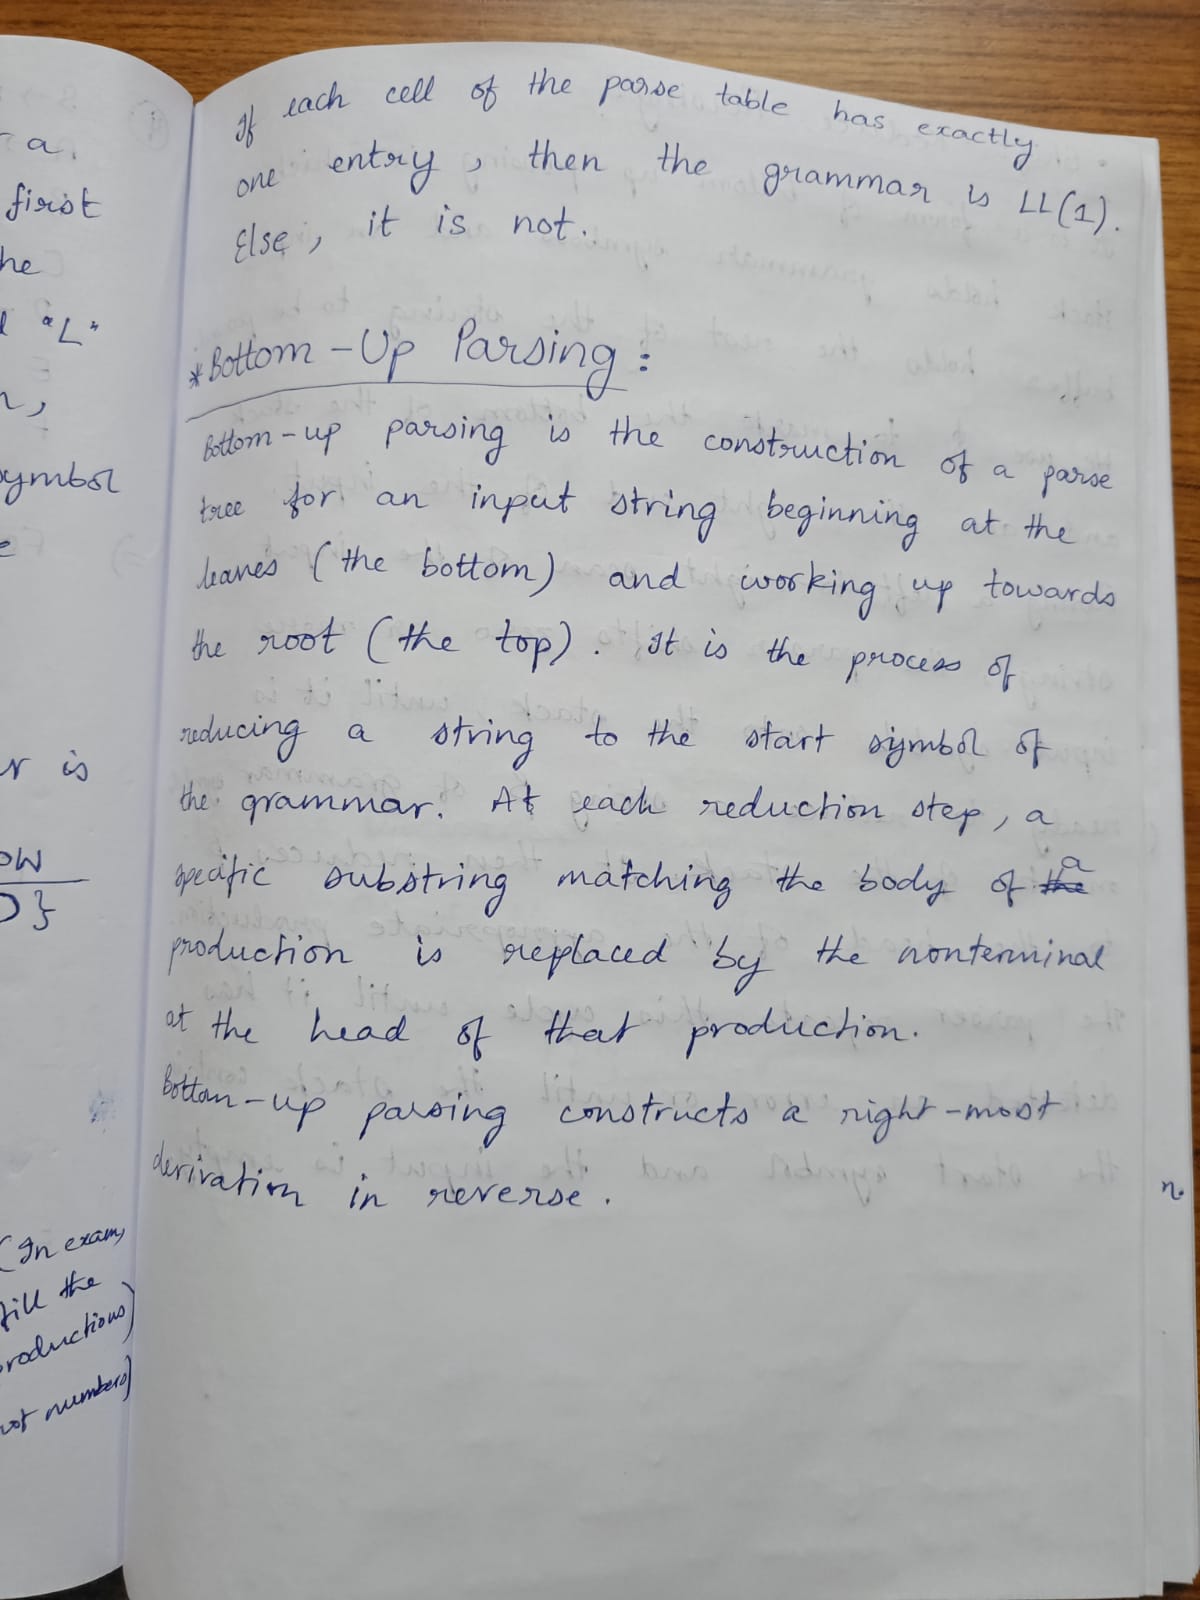 a.
first
he
"L"
symbol
is
ow
}
(In exam,
fill the
productions)
not numbers)
If each cell of the parse table has exactly
one entry, then the grammar is LL(1).
Else, it is not.
* Bottom-Up Parsing:
Bottom-up parsing is the construction of a parse
tree for an input string beginning at the
leaves (the bottom) and working up towards
the root (the top). It is the process of
reducing a string to the start symbol of
the grammar. At each reduction step, a
specific substring matching the body of a
production is replaced by the nonterminal
at the head of that production.
Bottom-up parsing constructs a right-most
derivation in reverse.
n.